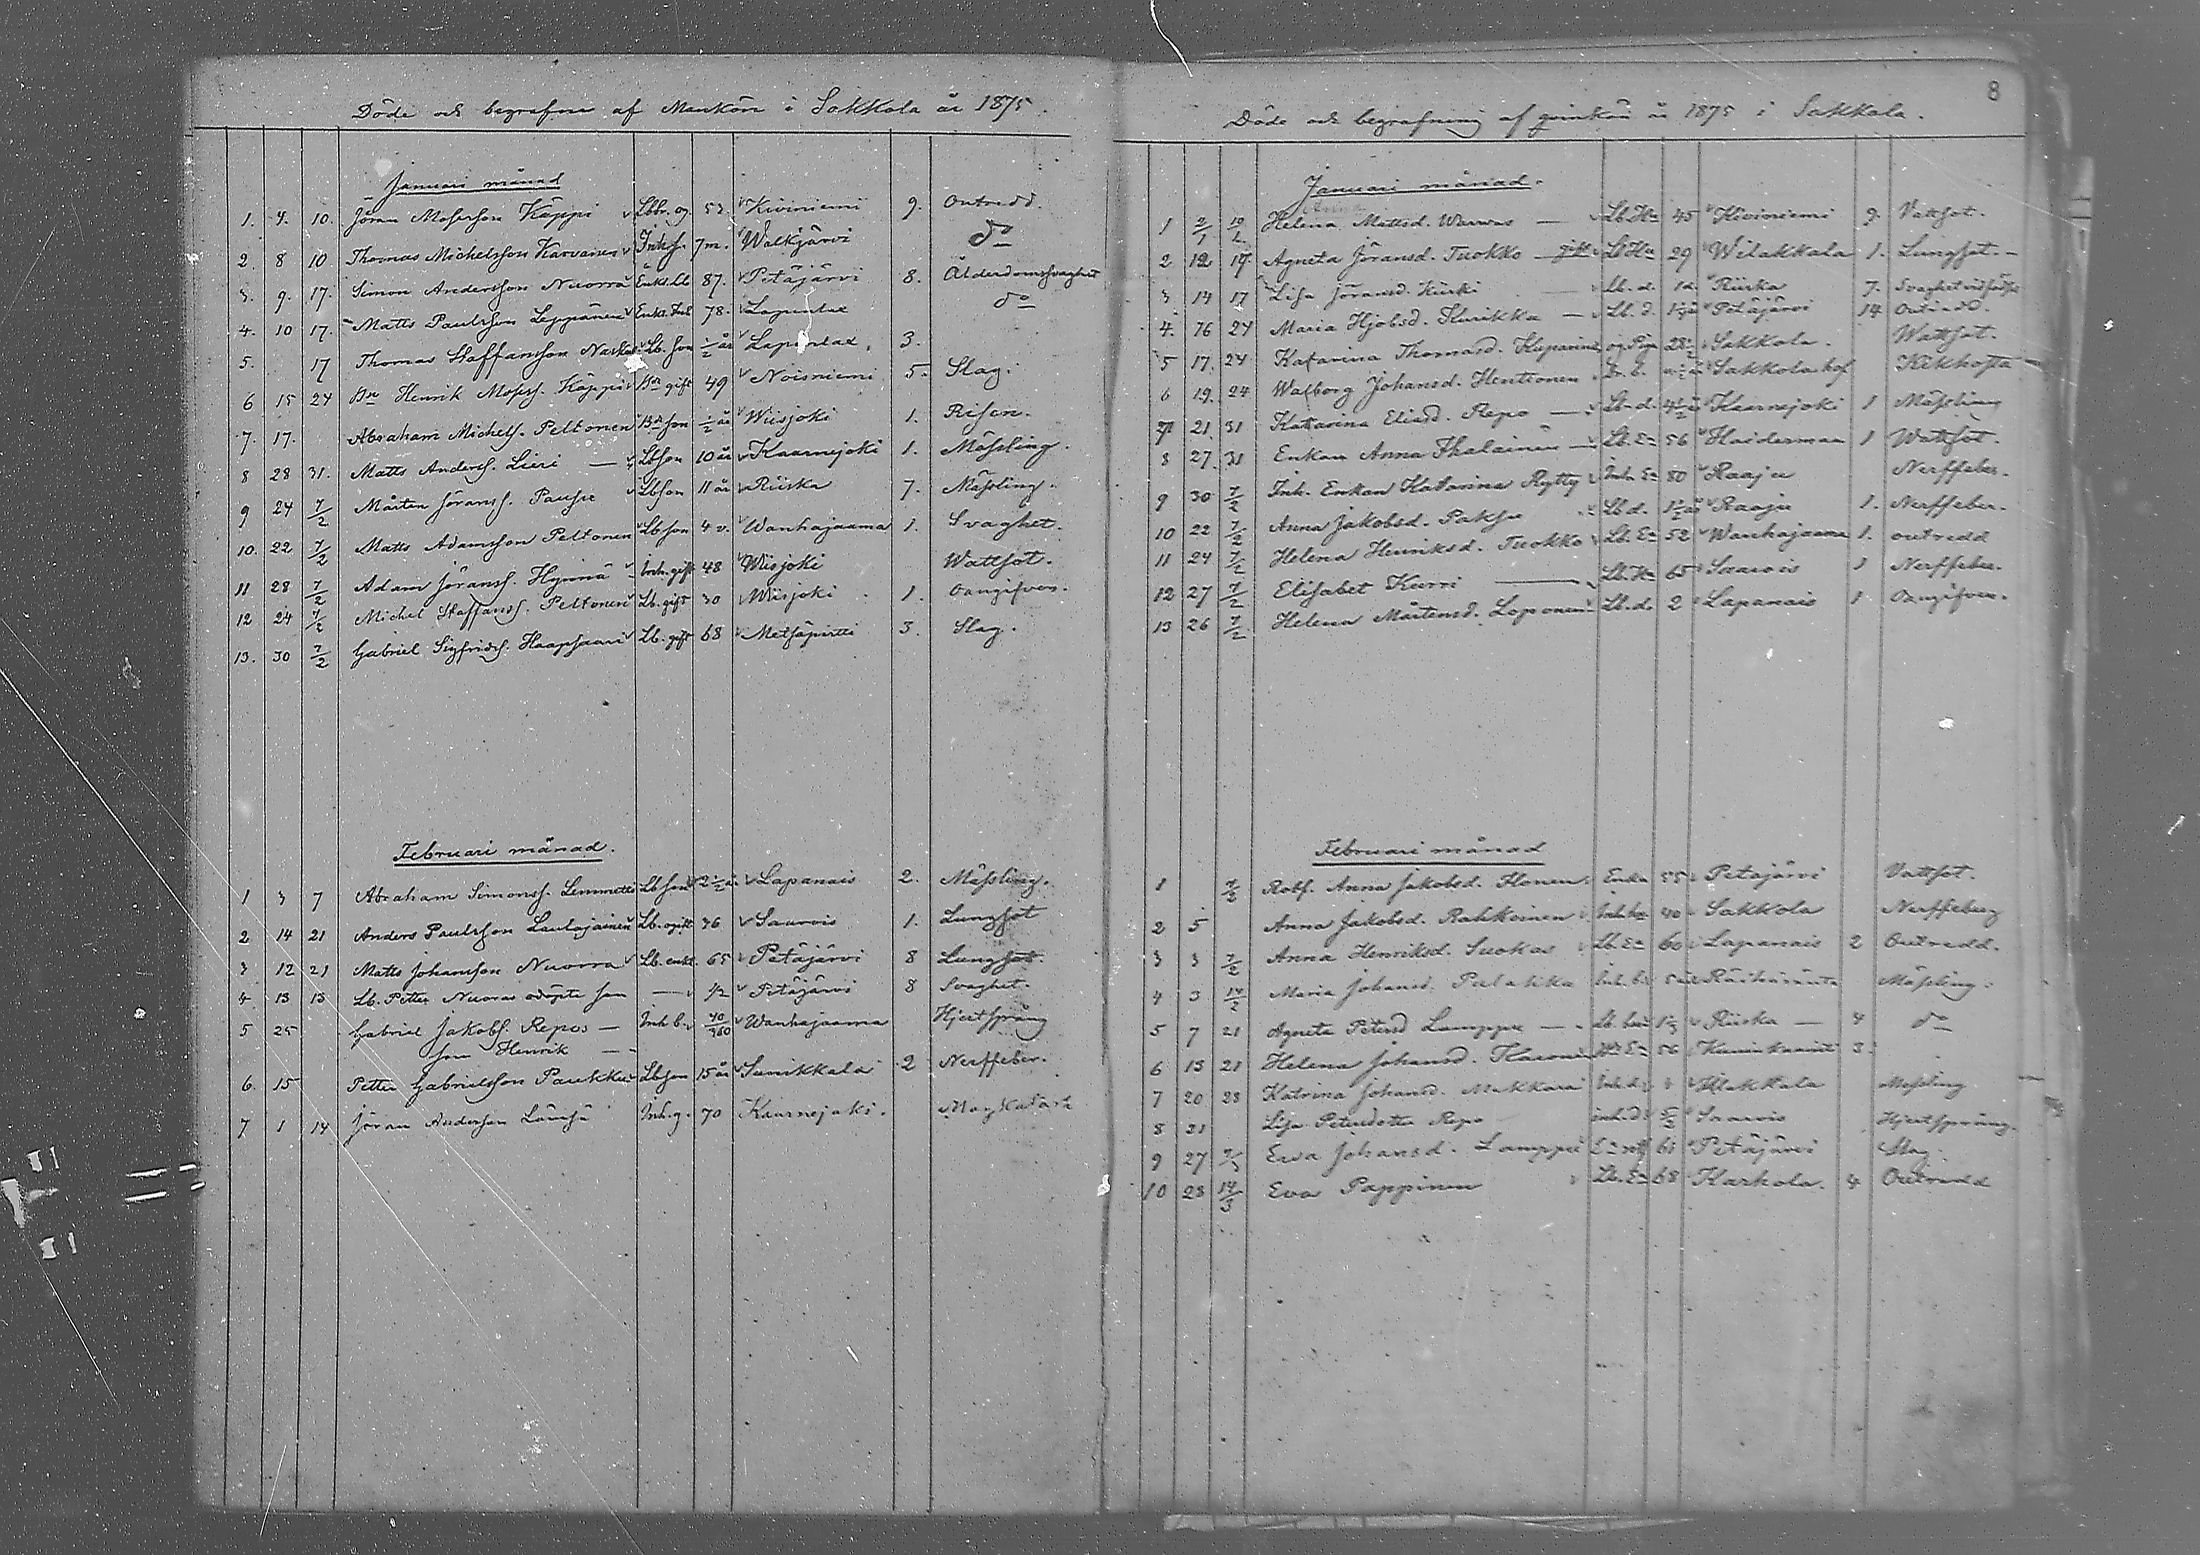 Döde och begrafne af Mankön i Sakkola år 1875.
Januari månad
1. 4. 10. Jöran Mosesson Käppi Lbbr. og 53 Kiviniemi 9. outredd.
2. 8 10 Thomas Michelsson Karvanen Inh s. 7m. Walkjärvi do
3. 9. 17. Simon Andersson Nuorra Enkl. Lb 87. Petäjärvi 8. Ålderdomssvaghet
4. 10 17. Matts Paulsson Leppänen Enkl. Inh 78. Lapinlax do
5. 17 Thomas Staffansson Lb. son 1/2 år Lapinlax. 3.
6 15 24 Bn Henrik Moses. Käppi Bn gift 49 Noisniemi 5. Slag.
7. 17. Abraham Michels. Peltonen Bn son 1/2 år Wiisjoki 1. Risen.
8 28 31. Matts Anders. Lieri — Lbson 10 år Kaarnejoki 1. Mässling.
9 24 7/2 Mårten Jörans. Pausse Lbson 11 år Riiska 7. Mässling.
10. 22 7/2 Matts Adamsson Peltonen Lbson 4 v. Wanhajaama 1. Svaghet.
11 28 7/2 Adam Jörans. Hyniä Inh. gift 48 Wiisjoki Wattsot.
12 24 7/2 Michel Staffans. Peltonen Lb. gift 30 Wiisjoki 1. oangifven.
13. 30 7/2 Gabriel Sigfrids. Haapsaari Lb. gift 68 Metsäpirtti 3. Slag.
Februari månad.
1 3 7 Abraham Simons. Lemmetti Lbson 2 1/2 år Lapanais 2. Mässling.
2 14 21 Anders Paulsson Laulajainen Lb. ogift 36 Saarois 1. Lungsot
3 12 21 Matts Johansson Nuorra Lb. enkl. 65 Petäjärvi 8 Lungsot.
4 13 13 Lb. Petter Nuoras odöpte son — 1/2 Petäjärvi 8 Svaghet.
5 25 Gabriel Jakobs. Repos — Inh b. 40/360 Wanhajaama Hjertsprång
son Henrik —
6. 15 Petter Gabrielsson Paukku Lbson 15 år Sunikkala 2 Nerffeber.
7 1 14 Jöran Andersson Länsä Inh. g. 70 Kaarnejoki. Magkatarr
8
Döde och begrafning af qvinkön år 1875 i Sakkola.
Januari månad.
Anna
1 2/1 10/1 Helena Mattsd. Warwas — Lb. Hu 45 Kiviniemi 9. Vattsot.
2 12 17 Agneta Jöransd. Tuokko — gift Lb Hu 29 Wilakkala 1. Lungsot. —
3 14 17 Lisa Jöransd. Kiiski Lb. d. 1d. Riiska 7. Svaghet vid födse
4. 16 24 Maria Hjobsd. — Lb. d. Petäjärvi 14 Outredd.
5 17. 24 Katarina Thomasd. Kuparinen og Pig 28 1/2 Sakkola. Wattsot.
6 19. 24 Walborg Johansd. Henttonen Sakkola hof Kikhosta —
7 21. 31 Katarina Eliasd. Repo — Lb. d. 4 1/2 Kaarnejoki 1 Mässling
8 27. 31 Enkan Anna Ihalainen — Lb. En 56 Haiderman 1 Wattsot.
9 30 7/2 Inh. Enkan Katarina Rytty Inh. En 80 Raaju Nerffeber.
10 22 7/2 Anna Jakobsd. Paksu Lb d. Raaju 1. Nerffeber.
11 24 7/2 Helena Henriksd. Tuokko Lb. En 52 Wanhajaama 1. outredd
12 27 7/2 Elisabet Kurri — Lb. Hu 65 Saarois 1 Nerffeber.
13 26 7/2 Helena Mårtensd. Loponen Lb. d. 2 Lapanais 1 Oangifven.
Februari månad
1 7/2 Rotf. Anna Jakobsd. Ilonen Enka 55 Petäjärvi Vattsot.
2 5 Anna Jakobsd. Rahkoinen Inh. hu 40 Sakkola Nerffeber
3 3 7/2 Anna Henriksd. Suokas Lb. En 60 Lapanais 2 Outredd.
4 3 14/2 Maria Johansd. Inh. b. 5 år Mässling.
5 7 21 Agneta Petersd Lamppu — Lb. Riiska — 4 do
6 13 21 Helena Johansd. En 56 3.
7 20 28 Katrina Johansd. Mukkara Inh. d. Mässling
8 21 Lisa Petersdotter Repo inh. d Saarois Hjertsprång.
9 27 7/3 Ewa Johansd. Lamppu 61 Petäjärvi Slag.
10 28 14/3 Eva Pappinen Lb. En 68 Karhola. 4 Outredd